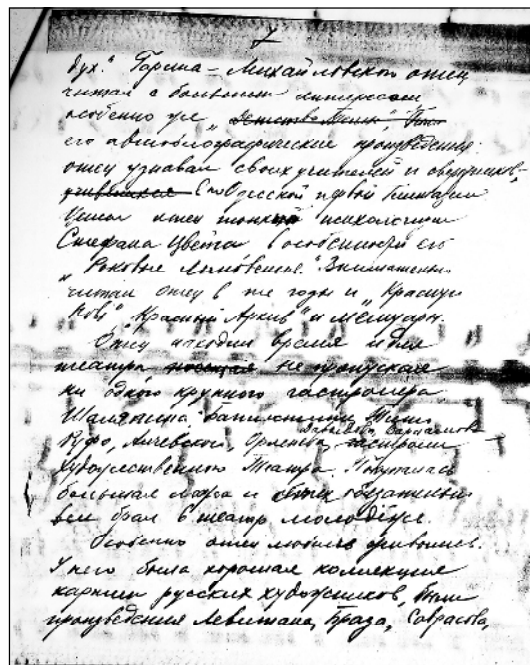 7
дух." Гарина-Михайловского отец
читал с большим интересом
особенно же "Детство Темы",
его автобиографические произведения:
отец узнавал своих учителей и сверстников,
учившихся с Одесской первой гимназии
Ценил отец тонкий психологизм
Стефана Цвейга в особенности его
"Роковые мгновенья." Внимательно
читал отец в те годы и "Красную
Новь" "Красный Архив" и мемуары.
Отец находил время и для
театра посещая не пропуская
ни одного крупного гастролера
Шаляпина Баттистини, Титто
Давыдова, Варламова
Руффо, Орленева, гастроли
Художественного Театра. Покупалась
большая ложа и отец обязательно
всю брал в театр молодёжь.
Особенно отец любил живопись.
У него была хорошая коллекция
картин русских художников, были
произведения Левитана, Браза, Саврасова,